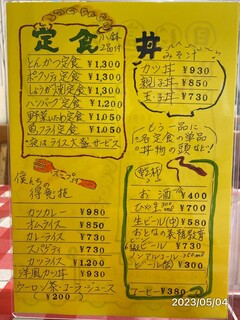 定食 小鉢2品付
とんかつ定食 ¥1,300
ポークソテ定食 ¥1,300
しょうが焼定食 ¥1,300
ハンバーグ定食 ¥1,100
野菜いため定食 ¥1,050
魚フライ定食 ¥1,050
※夜はライス大盛サービス
僕んちの得意技
カツカレー ¥980
オムライス ¥850
カレーライス ¥730
スパゲティ ¥730
カツライス ¥1,200
洋風カツ丼 ¥930
ウーロン茶・コーラ・ジュース ¥200
丼 みそ汁
カツ丼 ¥930
親子丼 ¥850
玉子丼 ¥730
もう一品に
名定食の単品
丼物の頭など!
お酒 ¥400
ひや ¥700
生ビール(中) ¥580
ビール ¥730
ノンアルコールビール ¥300
コーヒー ¥380
2023/05/04